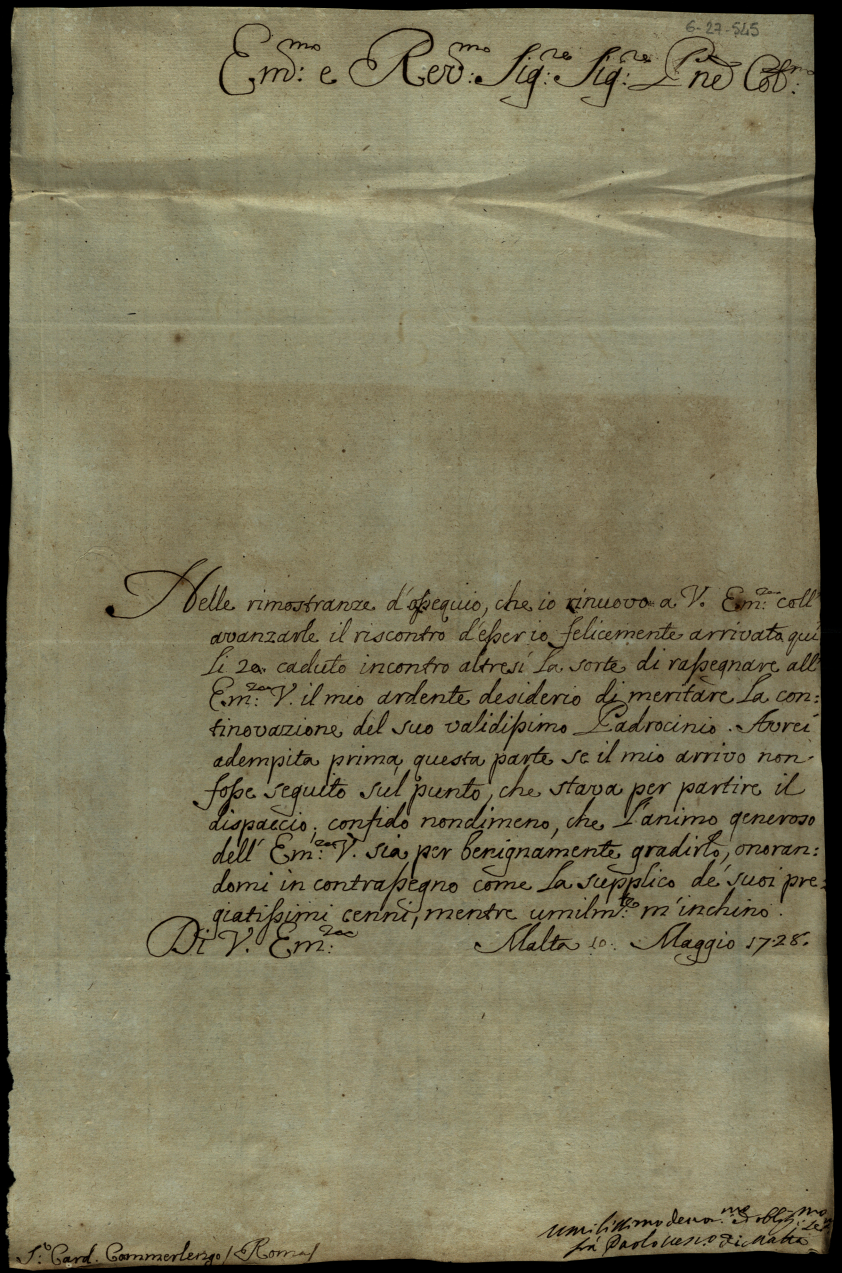 6-27-545
Em.mo e Rev.mo Sig.re Sig.re P.ne Col.mo
Nelle rimostranze d'ossequio, che io rinuovo a V. Em.za coll'
avanzarle il riscontro d'esser io felicemente arrivato quì
li 2. caduto incontro altresí la sorte di rassegnare all'
Em.za V. il mio ardente desiderio di meritare la con:
tinovazione del suo validissimo Padrocinio. Avrei
adempita prima questa parte se il mio arrivo non
fosse seguito sul punto, che stava per partire il
dispaccio; confido nondimeno, che l'animo generoso
dell'Em.za V. sia per benignamente gradirlo, onoran:
domi in contrassegno come la supplico de' suoi pre:
giatissimi cenni, mentre umilm.te m'inchino.
Di V. Em.za Malta 10. Maggio 1728.
umilissimo devo.mo obblig.mo
frà Paolo Vesc.o di Malta
S.r Card. Cammerlengo / Roma /